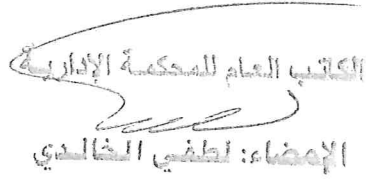 الكاتب العام للمحكمة الإدارية
الإمضاء: لطفي الخالدي